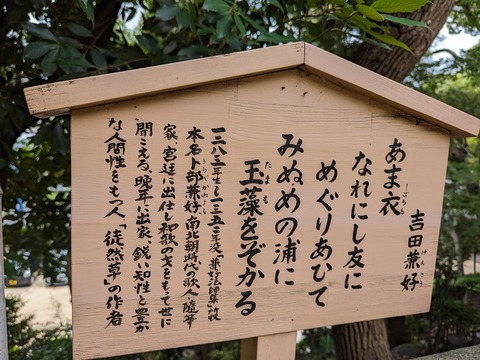 吉田兼好
けんこう
あま衣
ごろも
なれにし友に
めぐりあひて
みぬめの浦に
玉藻をぞかる
たまも
一二八三年生~一三五二年没「兼好法師集」所収
本名卜部兼好、南北朝時代の歌人、随筆
うらべかねよし
家、宮廷に出仕し和歌の才をもて世に
聞こえる。晩年に出家、鋭い知性と豊か
な人間性をもつ人「徒然草」の作者